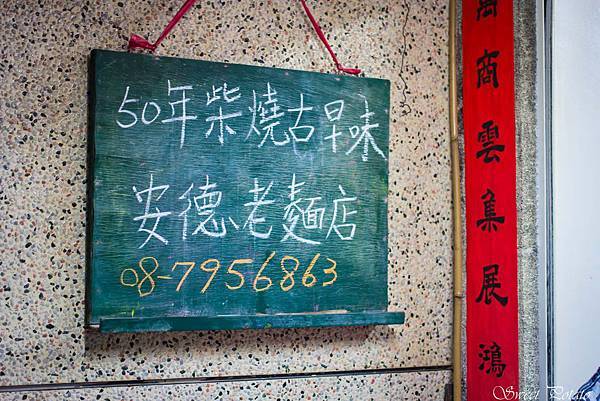 50年柴燒古早味
安德老麵店
08-7956863
萬商雲集展鴻
Sweet Potato